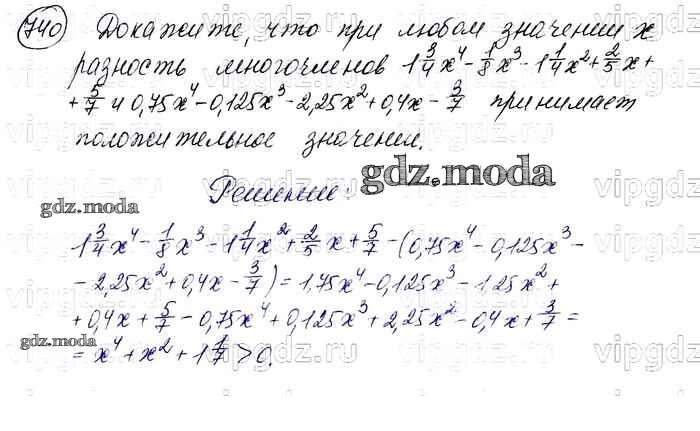 740 Докажите, что при любом значении x
разность многочленов 1 3/4 x⁴ - 1/8 x³ - 1 1/4 x² + 2/5 x +
+ 5/7 и 0,75x⁴ - 0,125x³ - 2,25x² + 0,4x - 3/7 принимает
положительное значение.
Решение:
gdz.moda
gdz.moda
1 3/4 x⁴ - 1/8 x³ - 1 1/4 x² + 2/5 x + 5/7 - (0,75x⁴ - 0,125x³ -
- 2,25x² + 0,4x - 3/7) = 1,75x⁴ - 0,125x³ - 1,25x² +
+ 0,4x + 5/7 - 0,75x⁴ + 0,125x³ + 2,25x² - 0,4x + 3/7 =
gdz.moda
= x⁴ + x² + 1 1/7 > 0.
vipgdz.ru